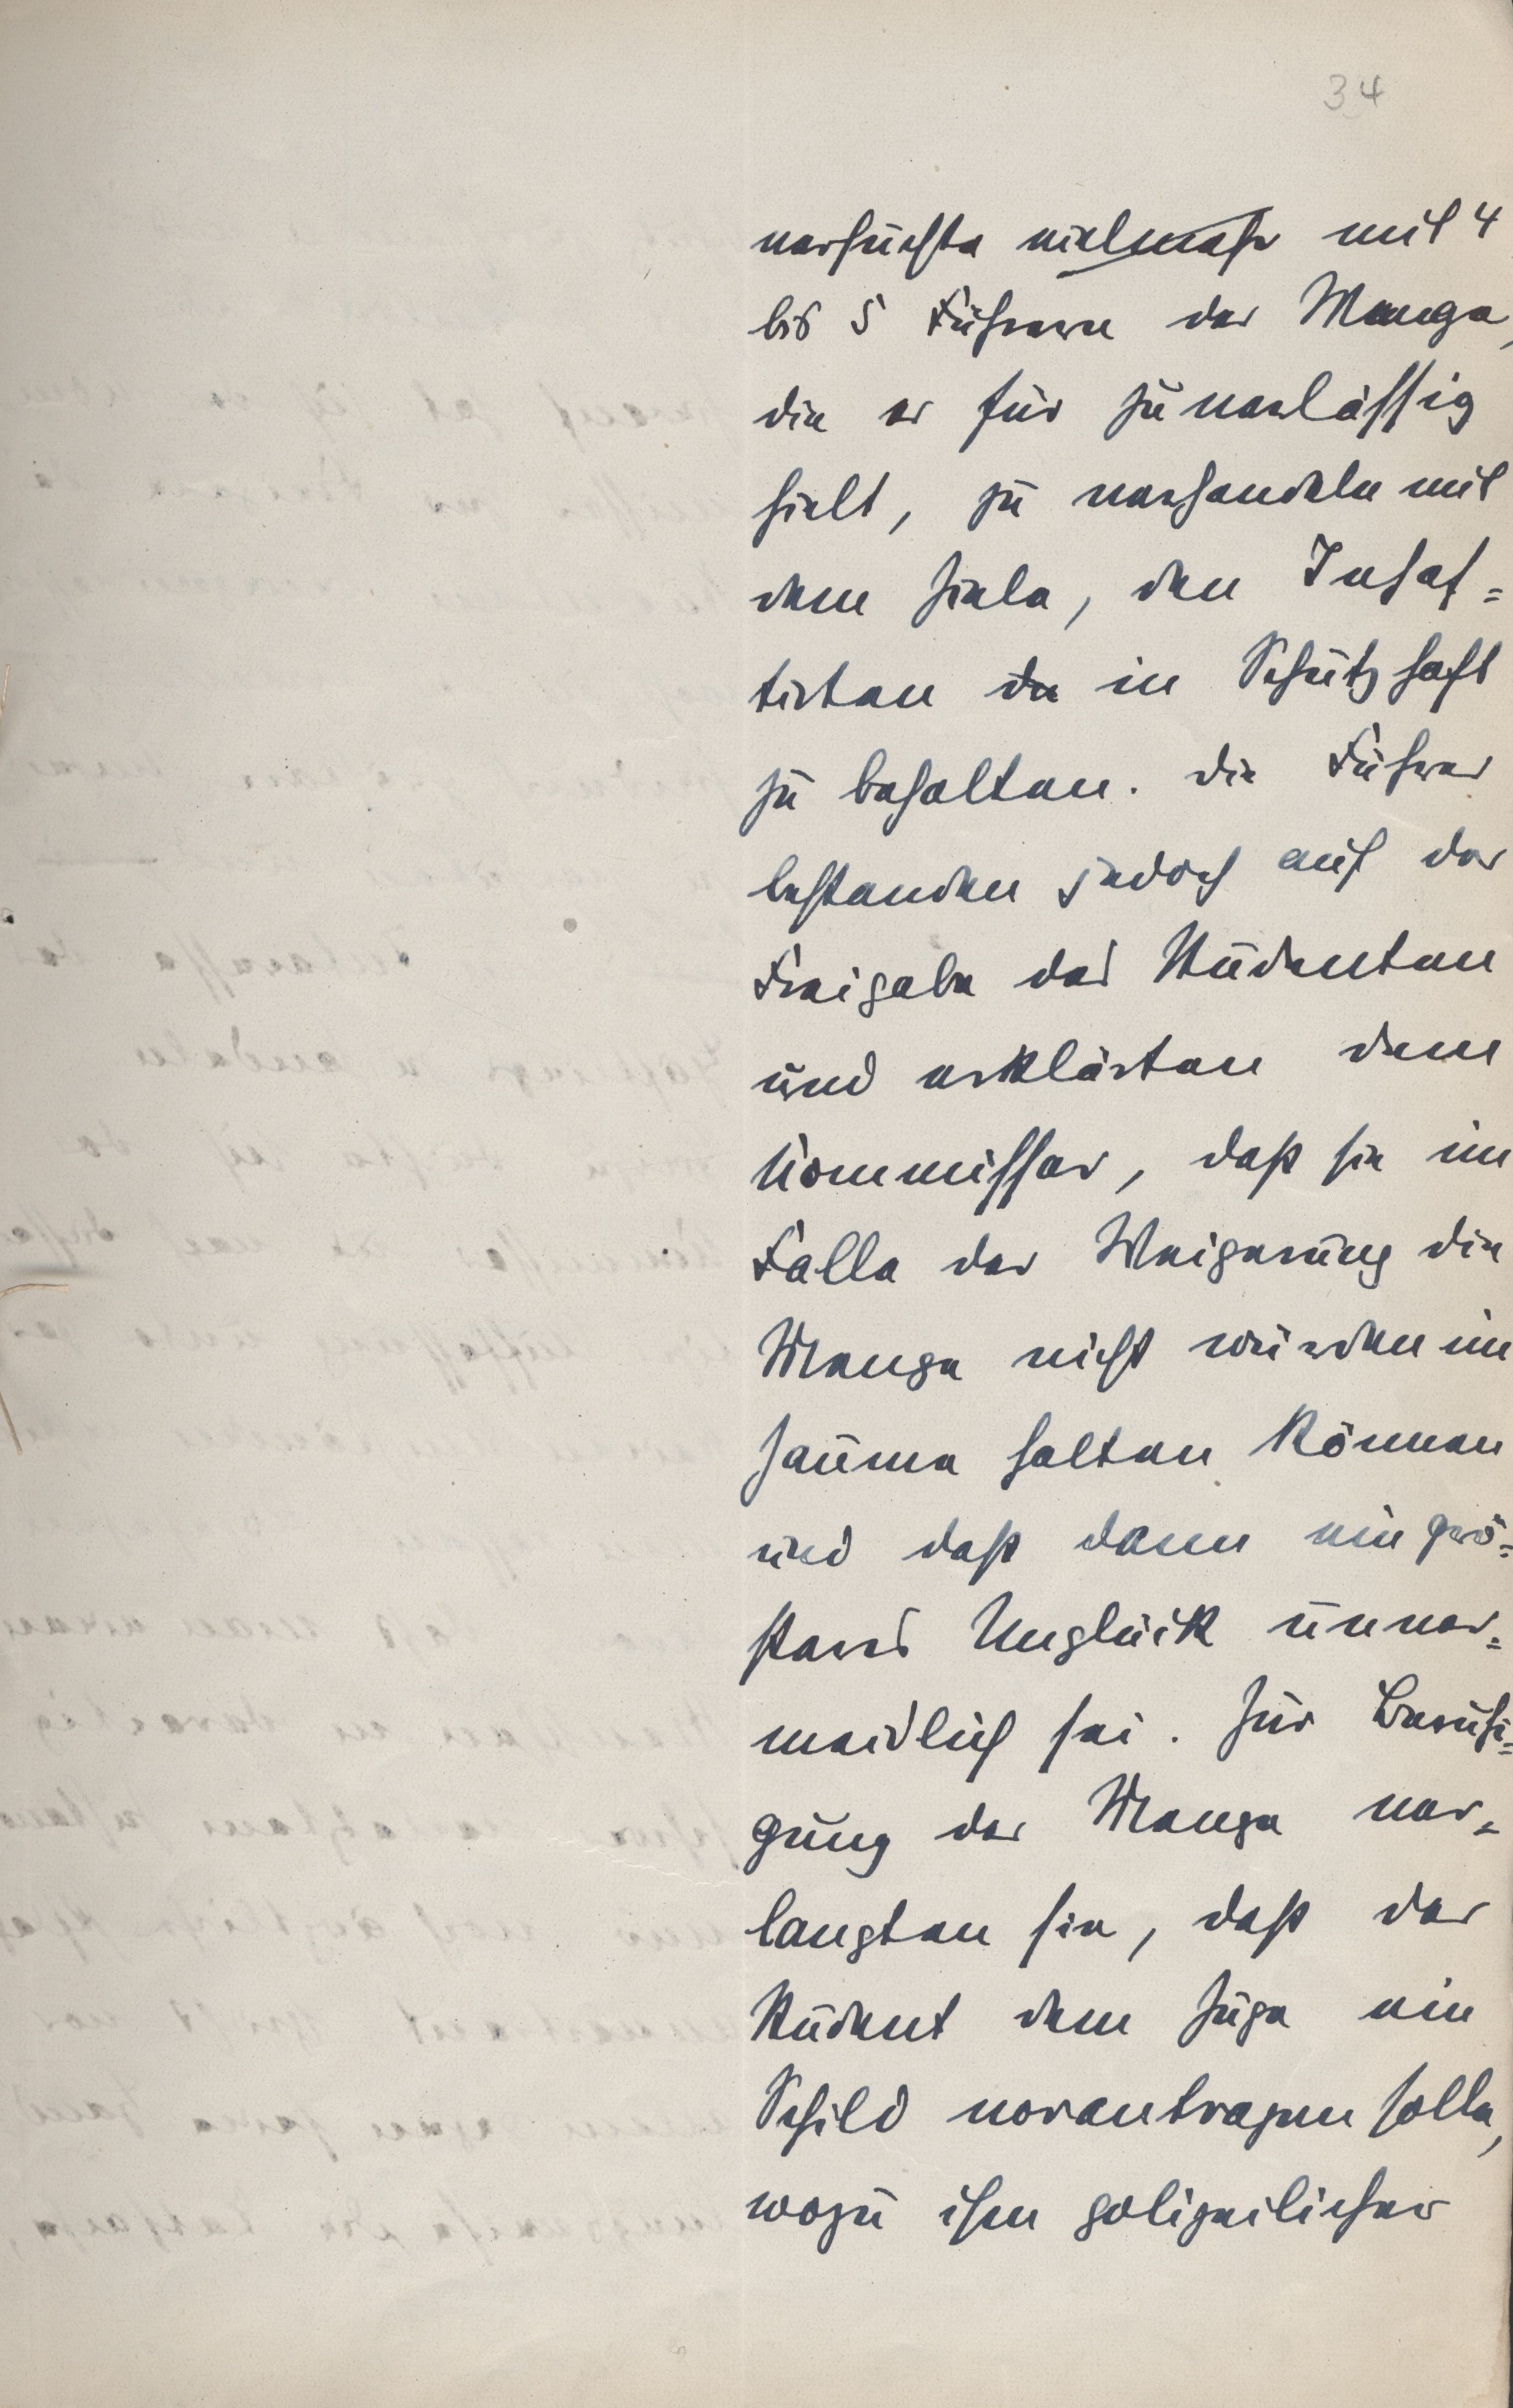 34
versuchte vielmehr mit 4
bis 5 Führern der Menge,
die er für zuverlässig
hielt, zu verhandeln mit
dem Ziele, den Inhaf=
tirten da in Schutzhaft
zu behalten. die Führer
bestanden jedoch auf der
Freigabe des Studenten
und erklärten dem
Kommissar, daß sie im
Falle der Weigerung die
Menge nicht würden im
Zaume halten können
und daß dann ein grö=
ßeres Unglück unver=
meidlich sei. Zur Beruhi=
gung der Menge ver=
langten sie, daß der
Student dem Zuge ein
Schild vorantragen solle,
wozu ihm polizeilicher